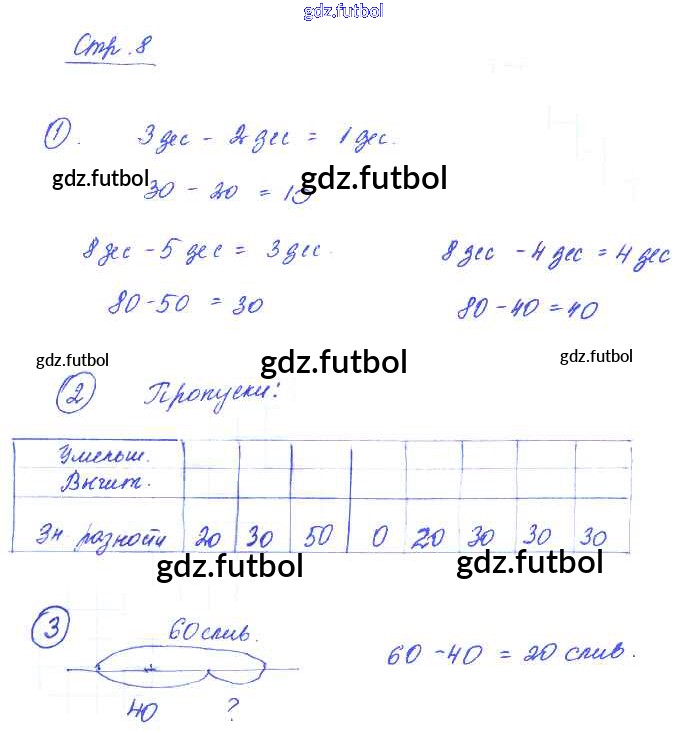 gdz.futbol
Стр. 8
1. 3 дес - 2 дес = 1 дес.
gdz.futbol gdz.futbol
30 - 20 = 10
8 дес - 5 дес = 3 дес. 8 дес - 4 дес = 4 дес
80 - 50 = 30 80 - 40 = 40
gdz.futbol gdz.futbol gdz.futbol
2 Пропуски:
Уменьш.
Вычит.
Зн разности 20 30 50 0 20 30 30 30
gdz.futbol gdz.futbol
3 60 слив.
60 - 40 = 20 слив.
40 ?